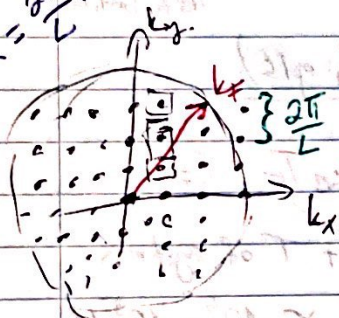 = 2π/L
ky.
kx
} 2π/L
kx